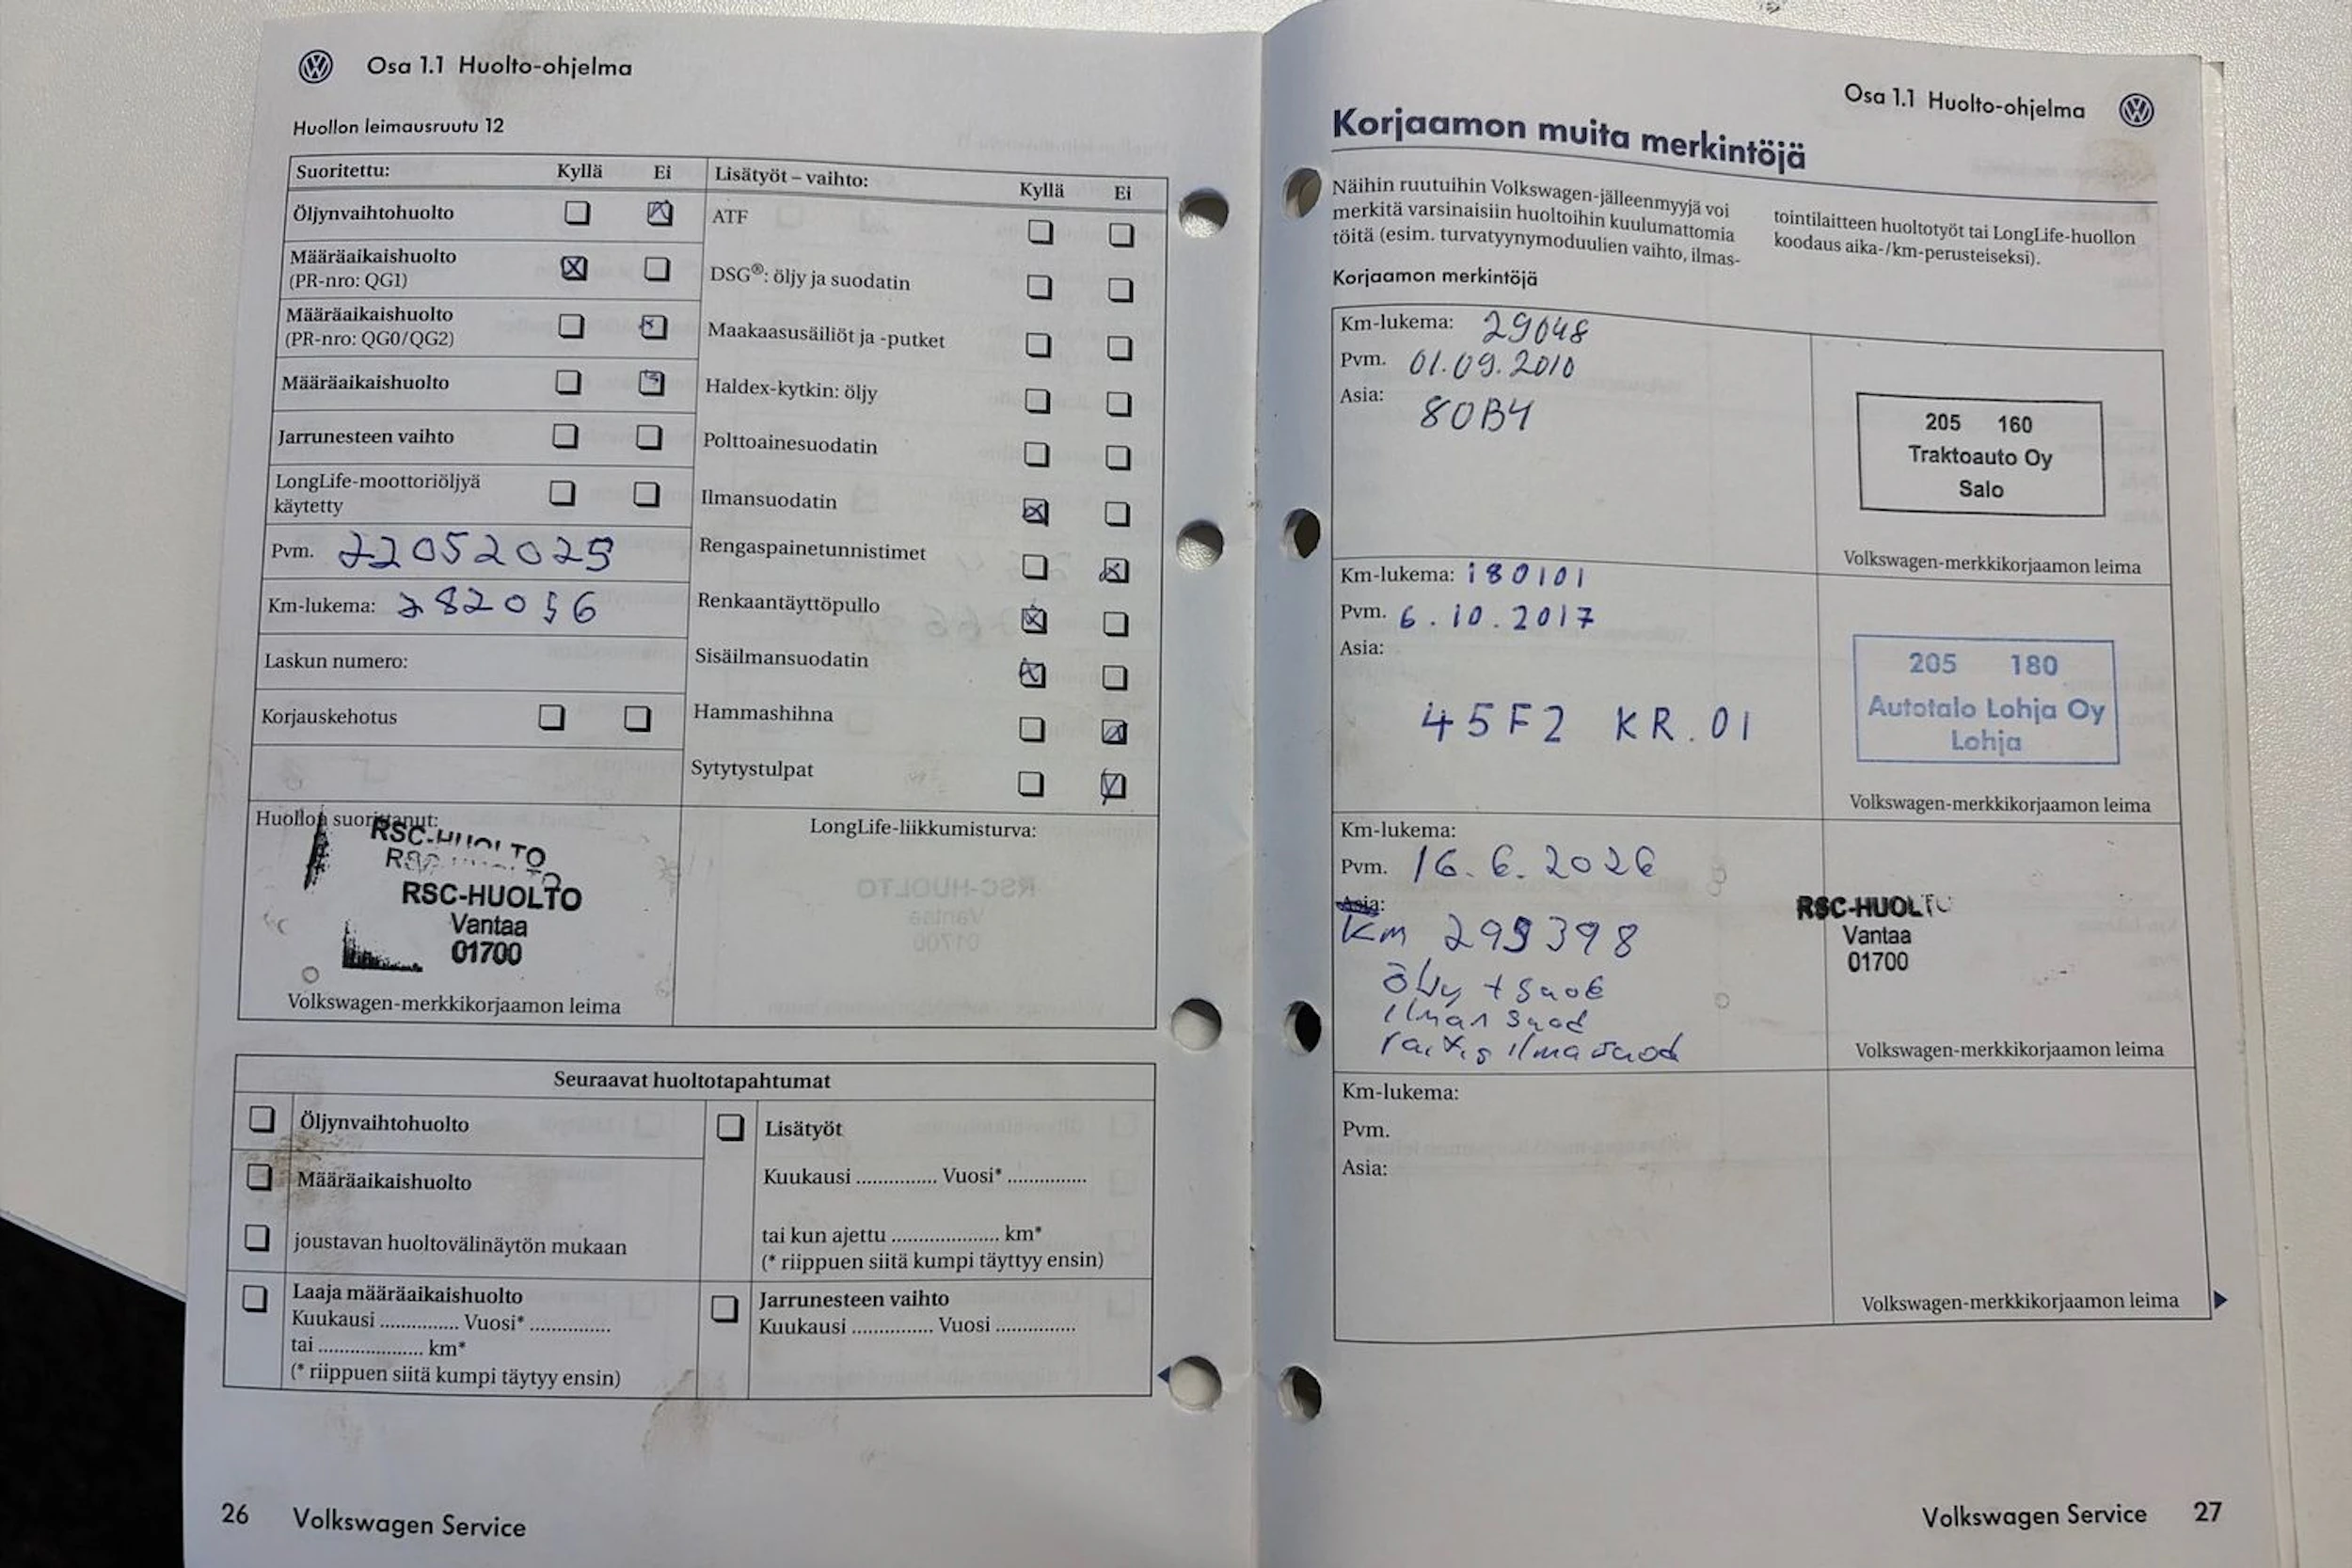 Osa 1.1 Huolto-ohjelma
Huollon leimausruutu 12
Suoritettu: Kyllä Ei
Öljynvaihtohuolto
Määräaikaishuolto
(PR-nro: QG1)
Määräaikaishuolto
(PR-nro: QG0/QG2)
Määräaikaishuolto
Jarrunesteen vaihto
LongLife-moottoriöljyä
käytetty
Pvm. 22052025
Km-lukema: 282056
Laskun numero:
Korjauskehotus
Lisätyöt – vaihto: Kyllä Ei
ATF
DSG®: öljy ja suodatin
Maakaasusäiliöt ja -putket
Haldex-kytkin: öljy
Polttoainesuodatin
Ilmansuodatin
Rengaspainetunnistimet
Renkaantäyttöpullo
Sisäilmansuodatin
Hammashihna
Sytytystulpat
Huollon suorittanut:
RSC-HUOLTO
RSC-HUOLTO
Vantaa
01700
Volkswagen-merkkikorjaamon leima
LongLife-liikkumisturva:
Seuraavat huoltotapahtumat
Öljynvaihtohuolto
Määräaikaishuolto
joustavan huoltovälinäytön mukaan
Laaja määräaikaishuolto
Kuukausi ............... Vuosi* ...............
tai .................... km*
(* riippuen siitä kumpi täytyy ensin)
Lisätyöt
Kuukausi ............... Vuosi* ...............
tai kun ajettu .................... km*
(* riippuen siitä kumpi täyttyy ensin)
Jarrunesteen vaihto
Kuukausi ............... Vuosi ...............
26 Volkswagen Service
Osa 1.1 Huolto-ohjelma
Korjaamon muita merkintöjä
Näihin ruutuihin Volkswagen-jälleenmyyjä voi
merkitä varsinaisiin huoltoihin kuulumattomia
töitä (esim. turvatyynymoduulien vaihto, ilmas-
tointilaitteen huoltotyöt tai LongLife-huollon
koodaus aika-/km-perusteiseksi).
Korjaamon merkintöjä
Km-lukema: 29048
Pvm. 01.09.2010
Asia:
80B4
205 160
Traktoauto Oy
Salo
Volkswagen-merkkikorjaamon leima
Km-lukema: 180101
Pvm. 6.10.2017
Asia:
45F2 KR.01
205 180
Autotalo Lohja Oy
Lohja
Volkswagen-merkkikorjaamon leima
Km-lukema:
Pvm. 16.6.2026
Asia:
Km 299398
öljy + suod
ilman suod
raitis ilmasuod
RSC-HUOLTO
Vantaa
01700
Volkswagen-merkkikorjaamon leima
Km-lukema:
Pvm.
Asia:
Volkswagen-merkkikorjaamon leima
Volkswagen Service 27